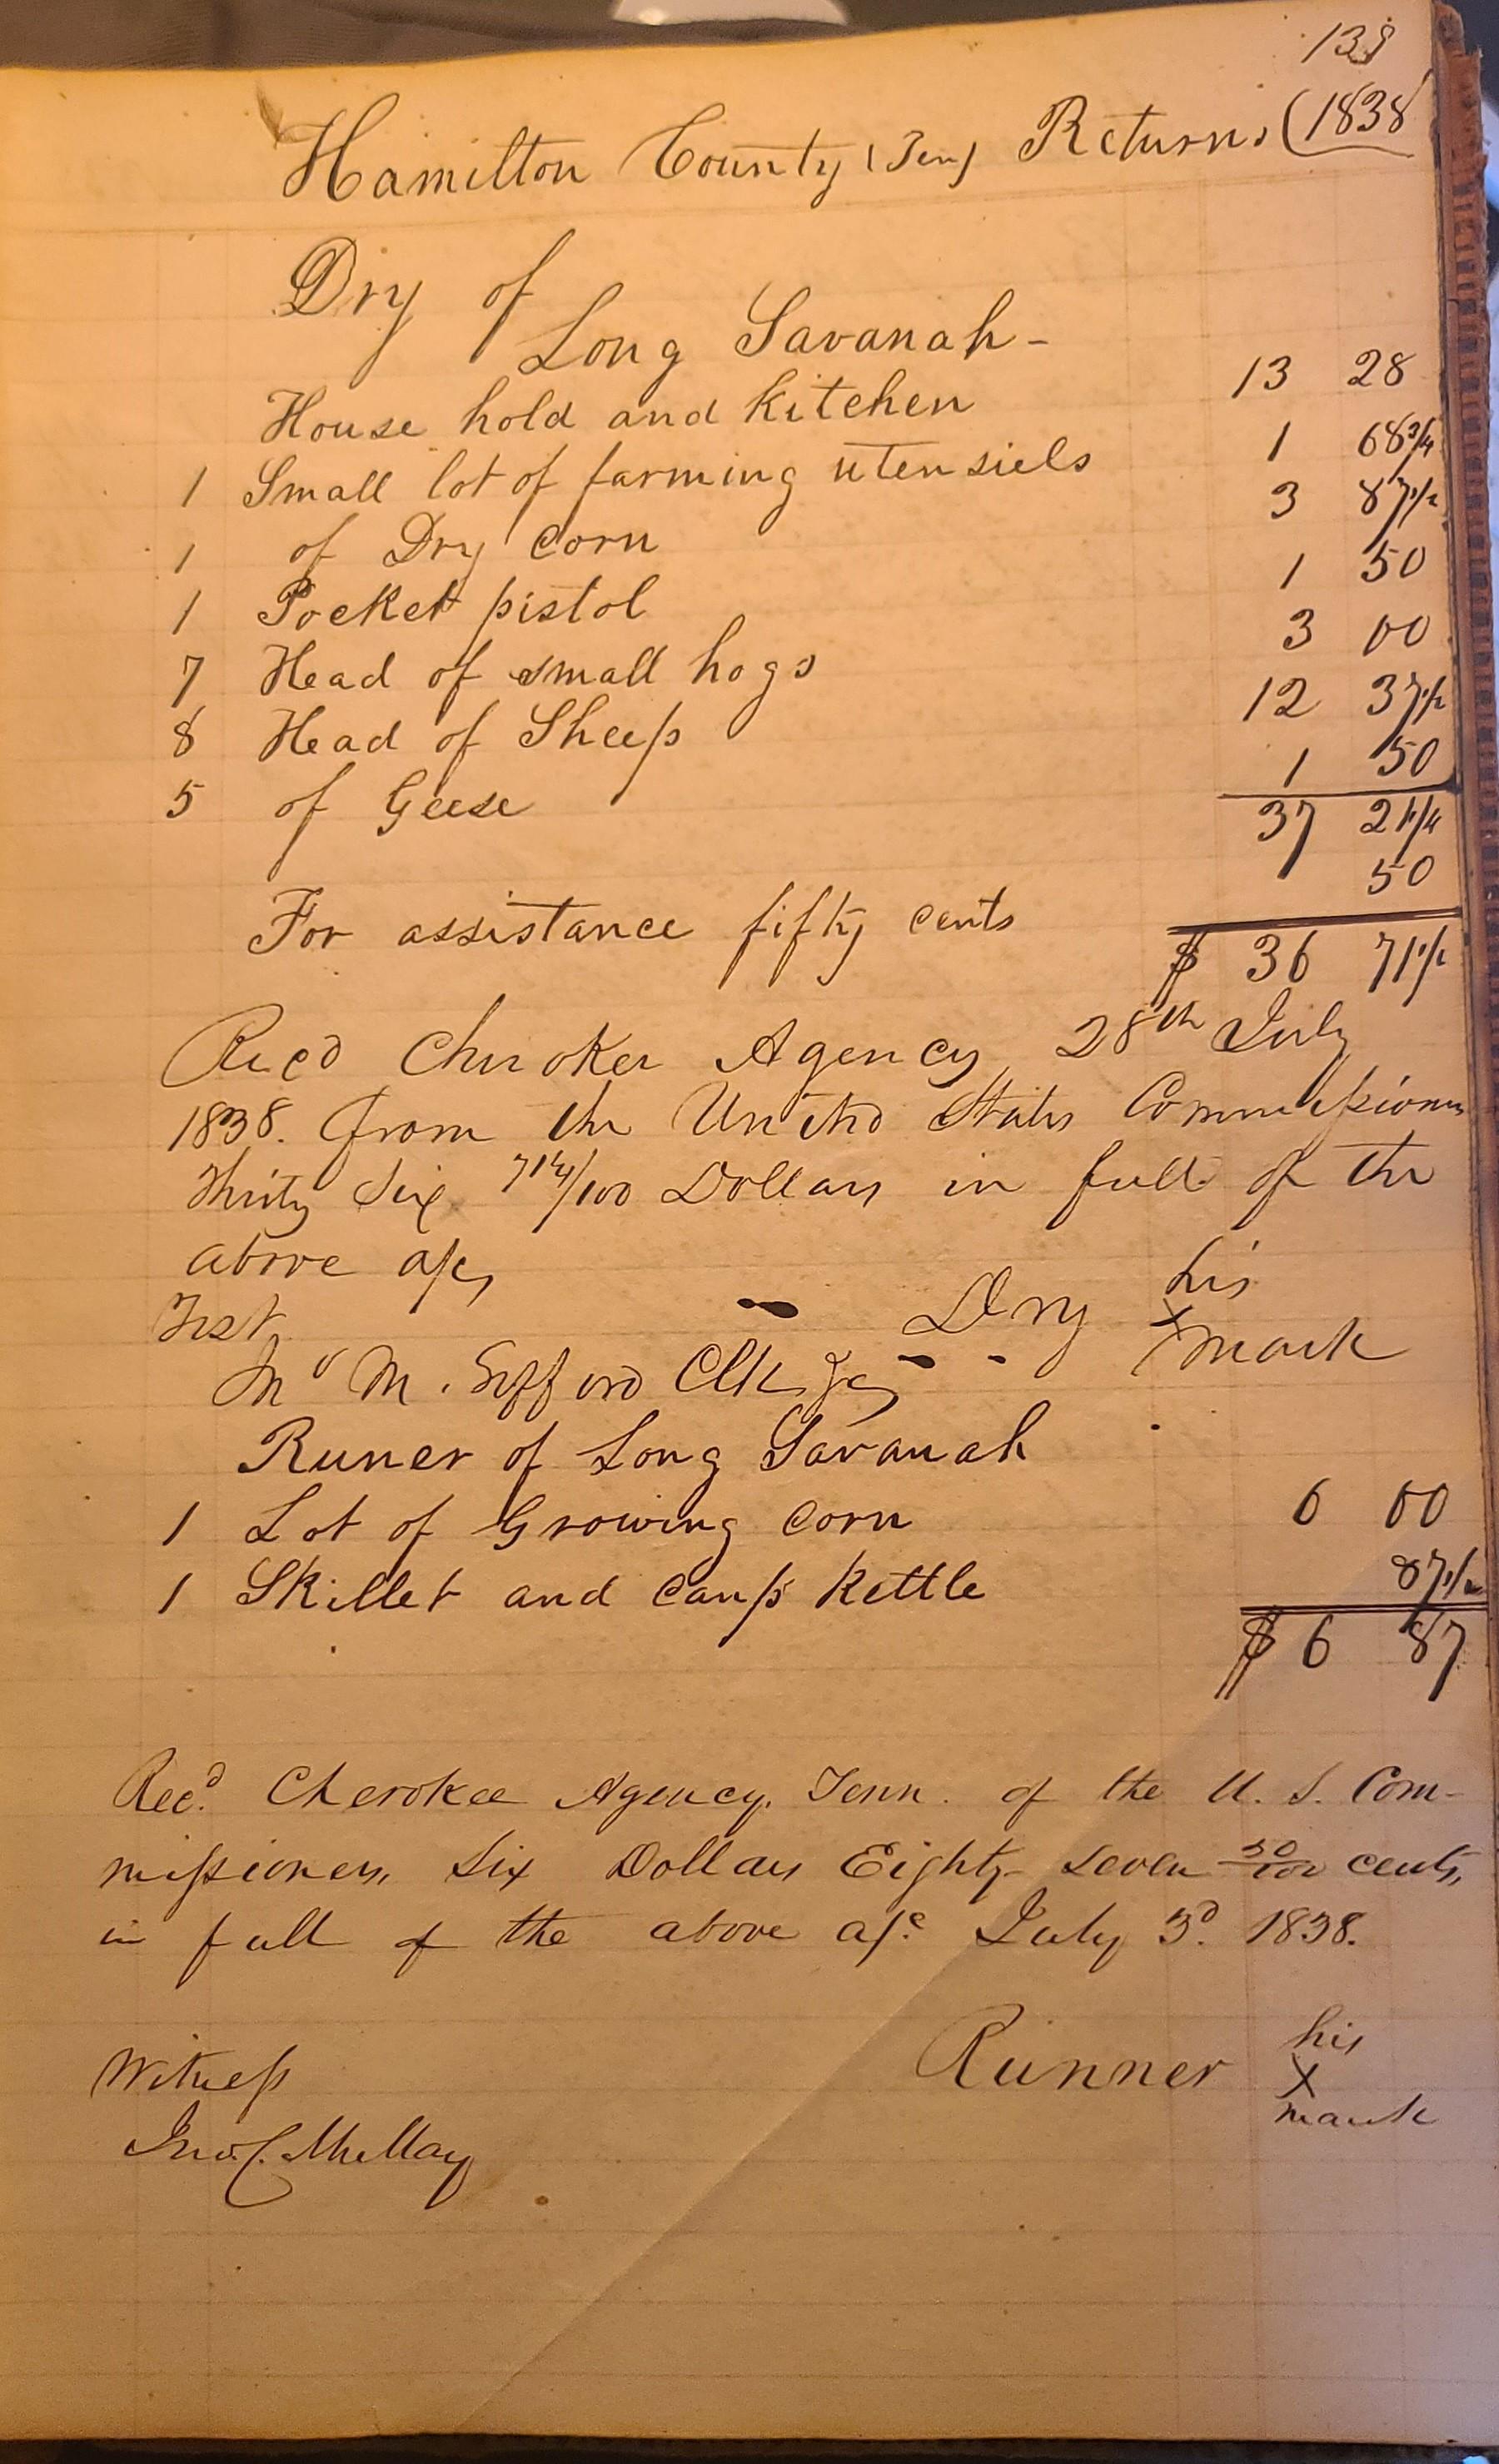 138
Hamilton County (Ten) Returns (1838
Dry of
Long Savanah -
House hold and Kitchen 13 28
1 Small lot of farming utensiels 1 68 3/4
1 of Dry Corn 3 87 1/2
1 Pocket pistol 1 50
7 Head of small hogs 3 00
8 Head of Sheep 12 37 1/2
5 of Geese 1 50
37 21 1/4
50
For assistance fifty cents
$ 36 71 1/2
Recd Cherokee Agency 28th July
1838. from the United States Commissioners
Thirty Six 71 1/4/100 Dollars in full of the
above a/c,
his
Test, Dry x
mark
M. Clk
Runer of Long Savanah
1 Lot of Growing Corn 6 00
1 Skillet and Camp Kettle 87 1/2
$ 6 87
Recd. Cherokee Agency. Tenn. of the U. S. Com-
missioners, Six Dollars Eighty-seven 50/100 cents,
in full of the above a/c. July 3d. 1838.
his
Witness Runner X
mark
Jno. C.